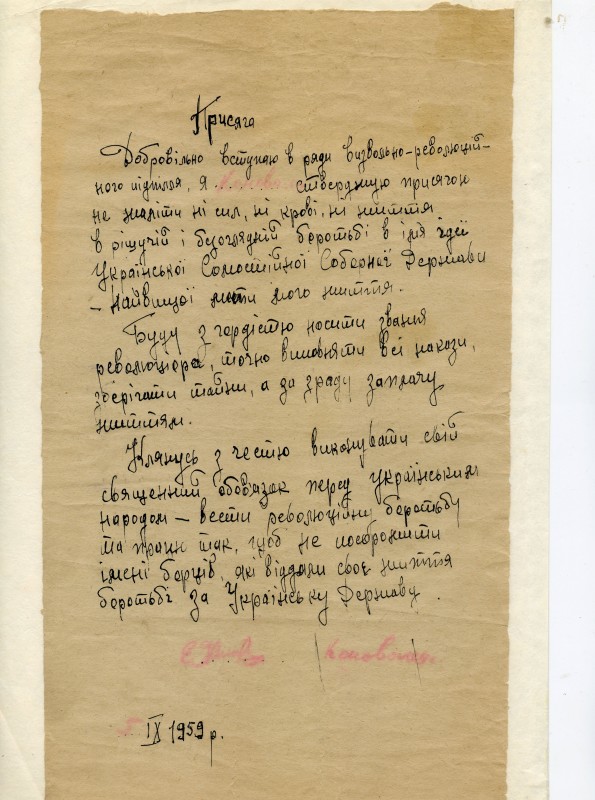 Присяга
Добровільно вступаю в ряди визвольно-революцій-
ного підпілля, я стверджую присягою
не жаліти ні сил, ні крові, ні життя
в рішучій і безоглядній боротьбі в ім'я ідеї
Української Самостійної Соборної Держави
- найвищої мети мого життя.
Буду з гордістю носити звання
революціонера, точно виповняти всі накази,
зберігати тайни, а за зраду заплачу
життям.
Клянусь з честю виконувати свій
священний обовязок перед українським
народом – вести революційну боротьбу
та так, щоб не посоромити
імені борців, які віддали своє життя
боротьбі за Українську Державу.
5 IX 1959 р.